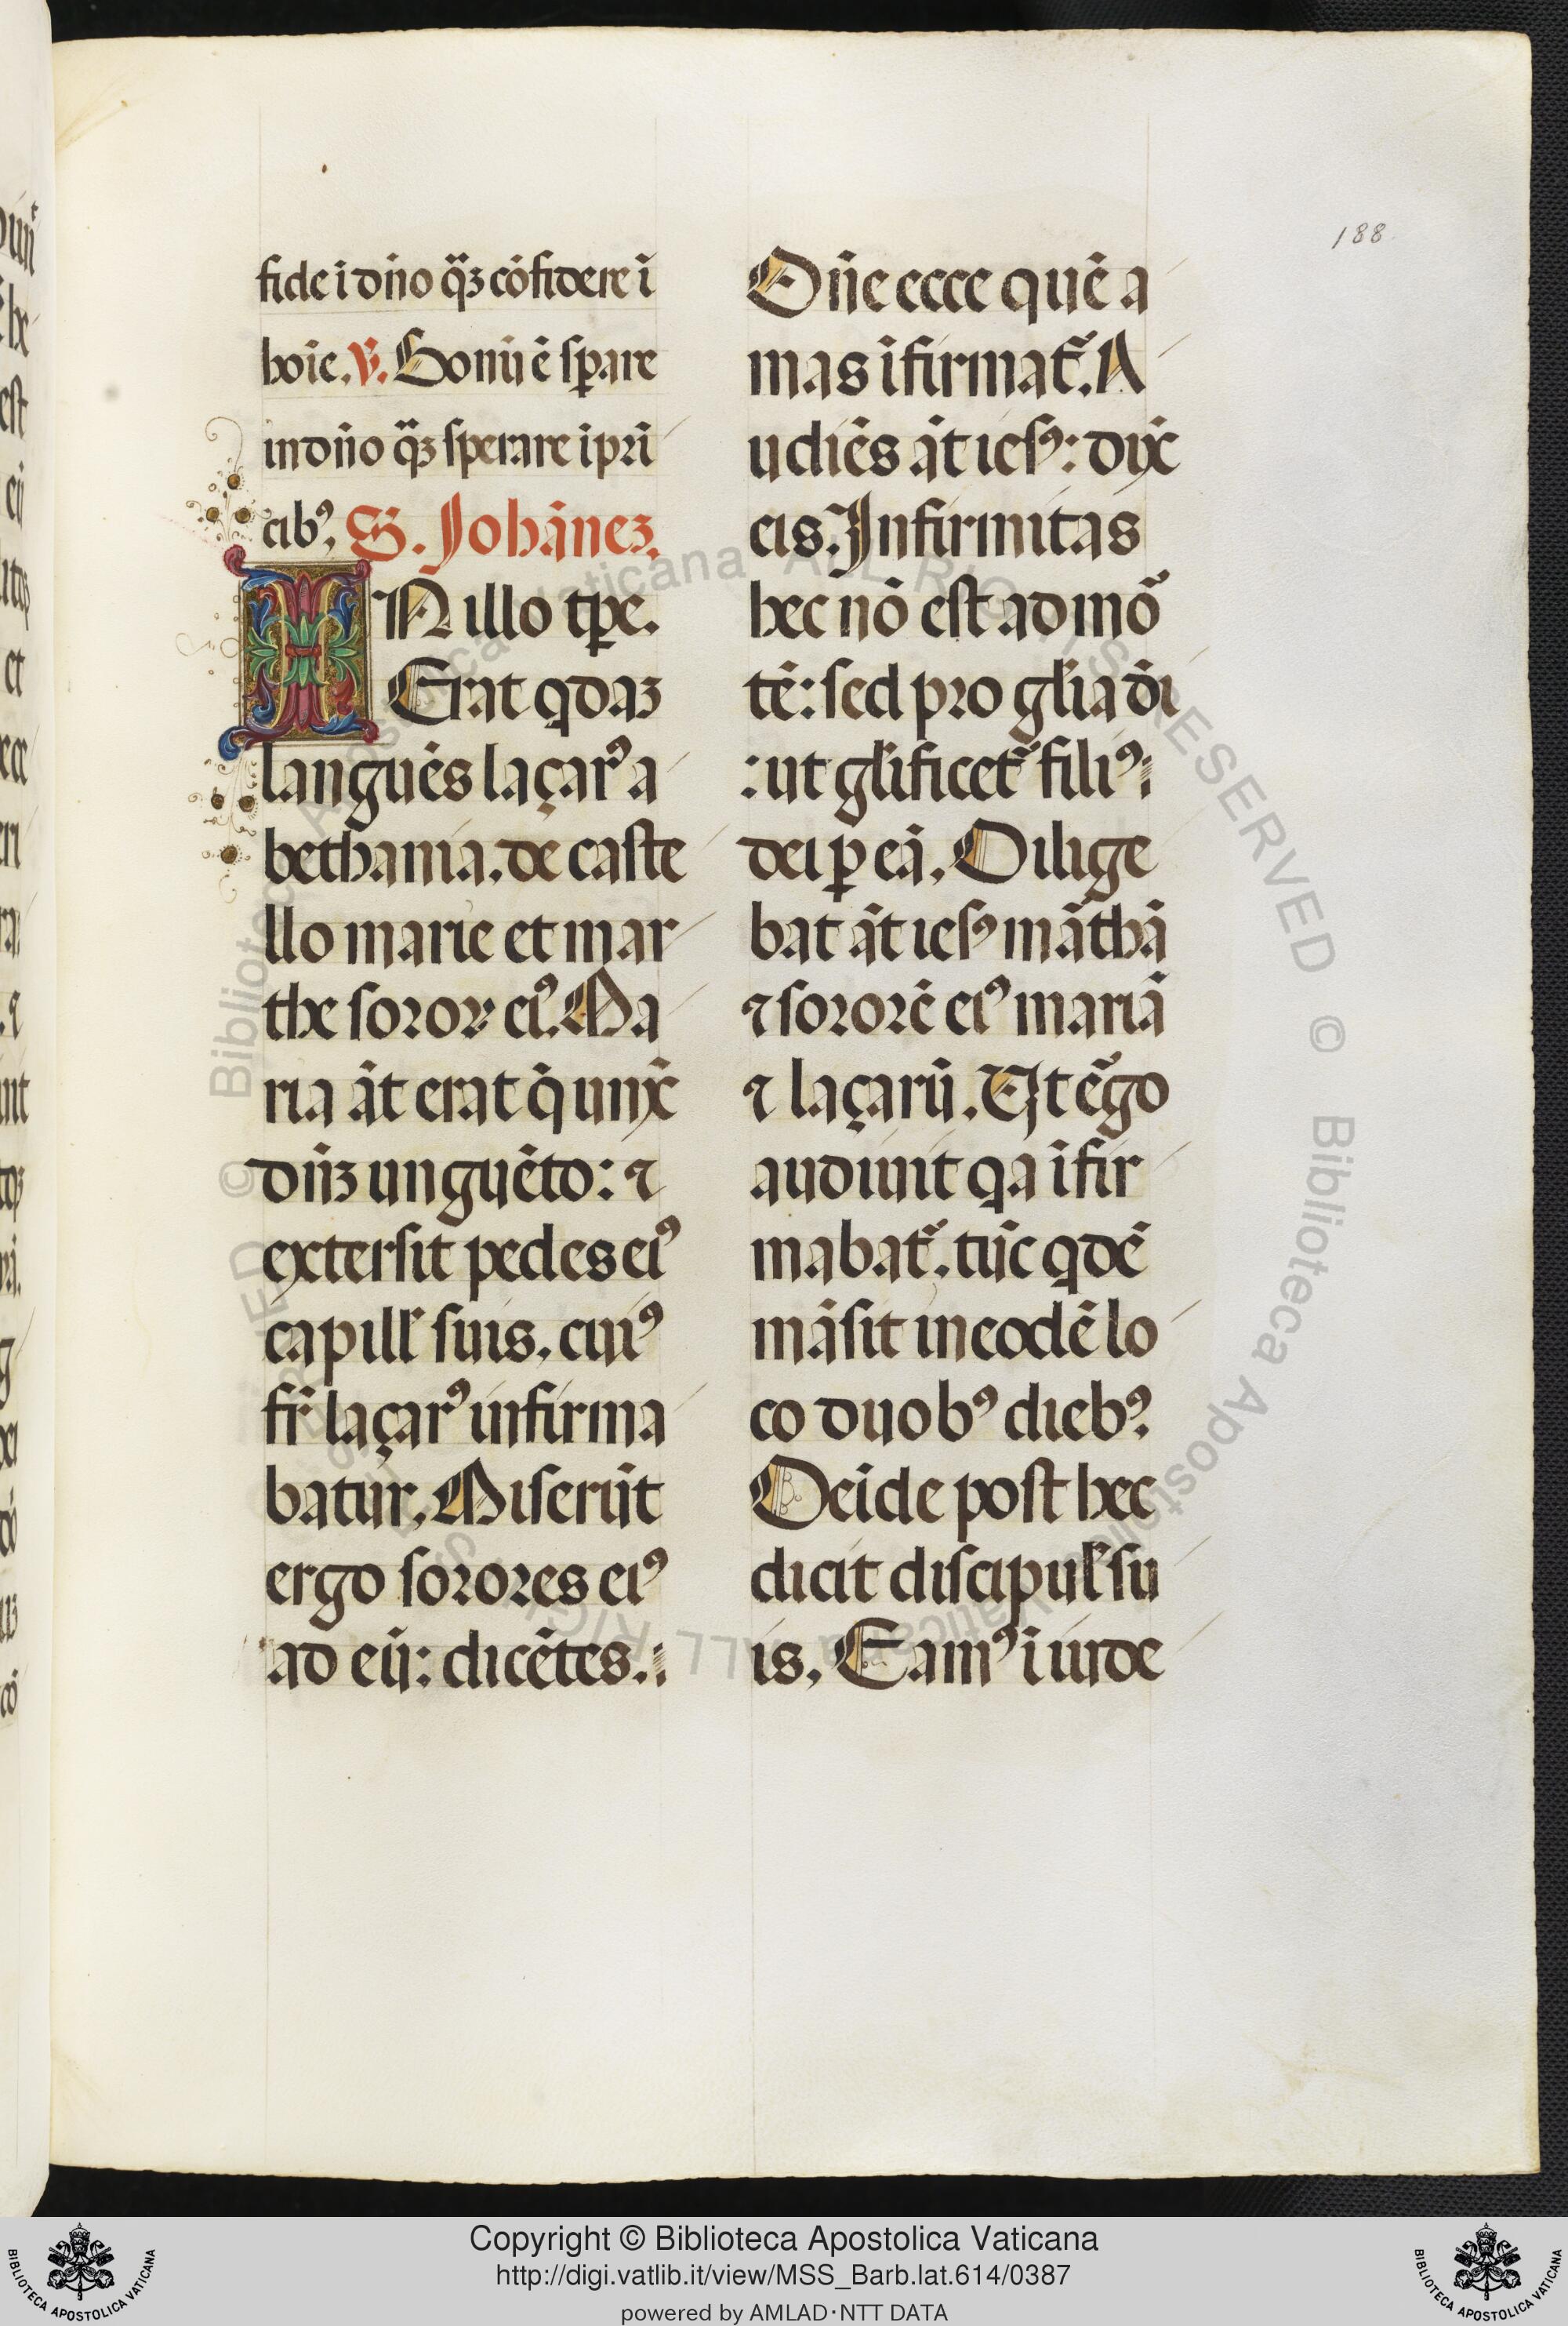 188
fide ī dn̄o q̈ꝫ cōfidere ī
hoīe. ℣. Bonū ē sꝑare
in dn̄o q̈ꝫ sperare i prī
cibꝰ, S. Johāneꝫ.
IN illo tp̄e.
Erat qdaꝫ
languēs laçarꝰ a
bethania. de caste
llo marie et mar
the soroꝝ eiꝰ. Ma
ria āt erat q̄ unx̄
dn̄ꝫ unguēto: ⁊
extersit pedes eiꝰ
capill᷒ suis. cuiꝰ
fr̄ laçarꝰ infirma
batur. Miserūt
ergo sorores eiꝰ
ad eū: dicētes.
Dn̄e ecce quē a
mas īfirmat᷑. A
udiēs āt iesꝰ: dix̄
eis. Infirmitas
hec nō est ad mō
tē: sed pro gl̄ia dī
: ut gl̄ificet᷑ filiꝰ
dei ꝑ eā. Dilige
bat āt iesꝰ māthā
⁊ sororē eiꝰ mariā
⁊ laçarū. Vt ēgo
audiuit qa īfir
mabat᷑. tūc qdē
māsit in eodē lo
co duobꝰ diebꝰ.
Deīde post hec
dicit discipul᷒ su
is. Eamꝰ ī iude
Copyright © Biblioteca Apostolica Vaticana
http://digi.vatlib.it/view/MSS_Barb.lat.614/0387
powered by AMLAD·NTT DATA
BIBLIOTECA APOSTOLICA VATICANA
BIBLIOTECA APOSTOLICA VATICANA